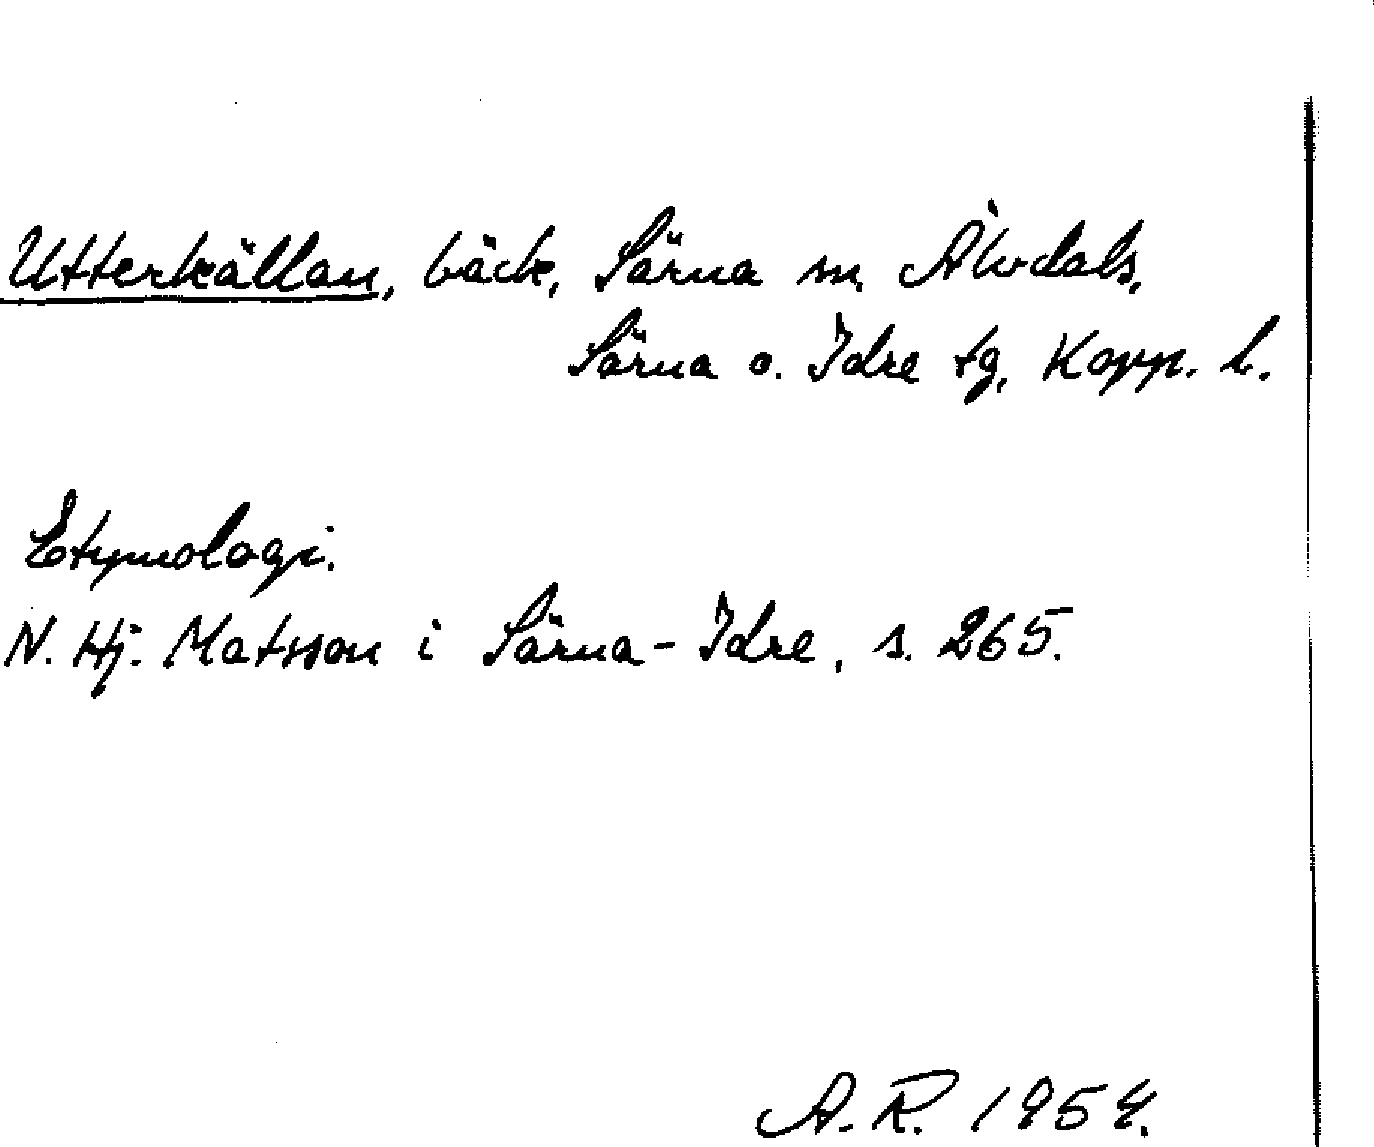 Utterkällan, bäck, Särna sn, Älvdals,
Särna o. Idre tg, Kopp. l.
Etymologi.
N. Hj. Matsson i Särna-Idre, s. 265.
A.R. 1954.